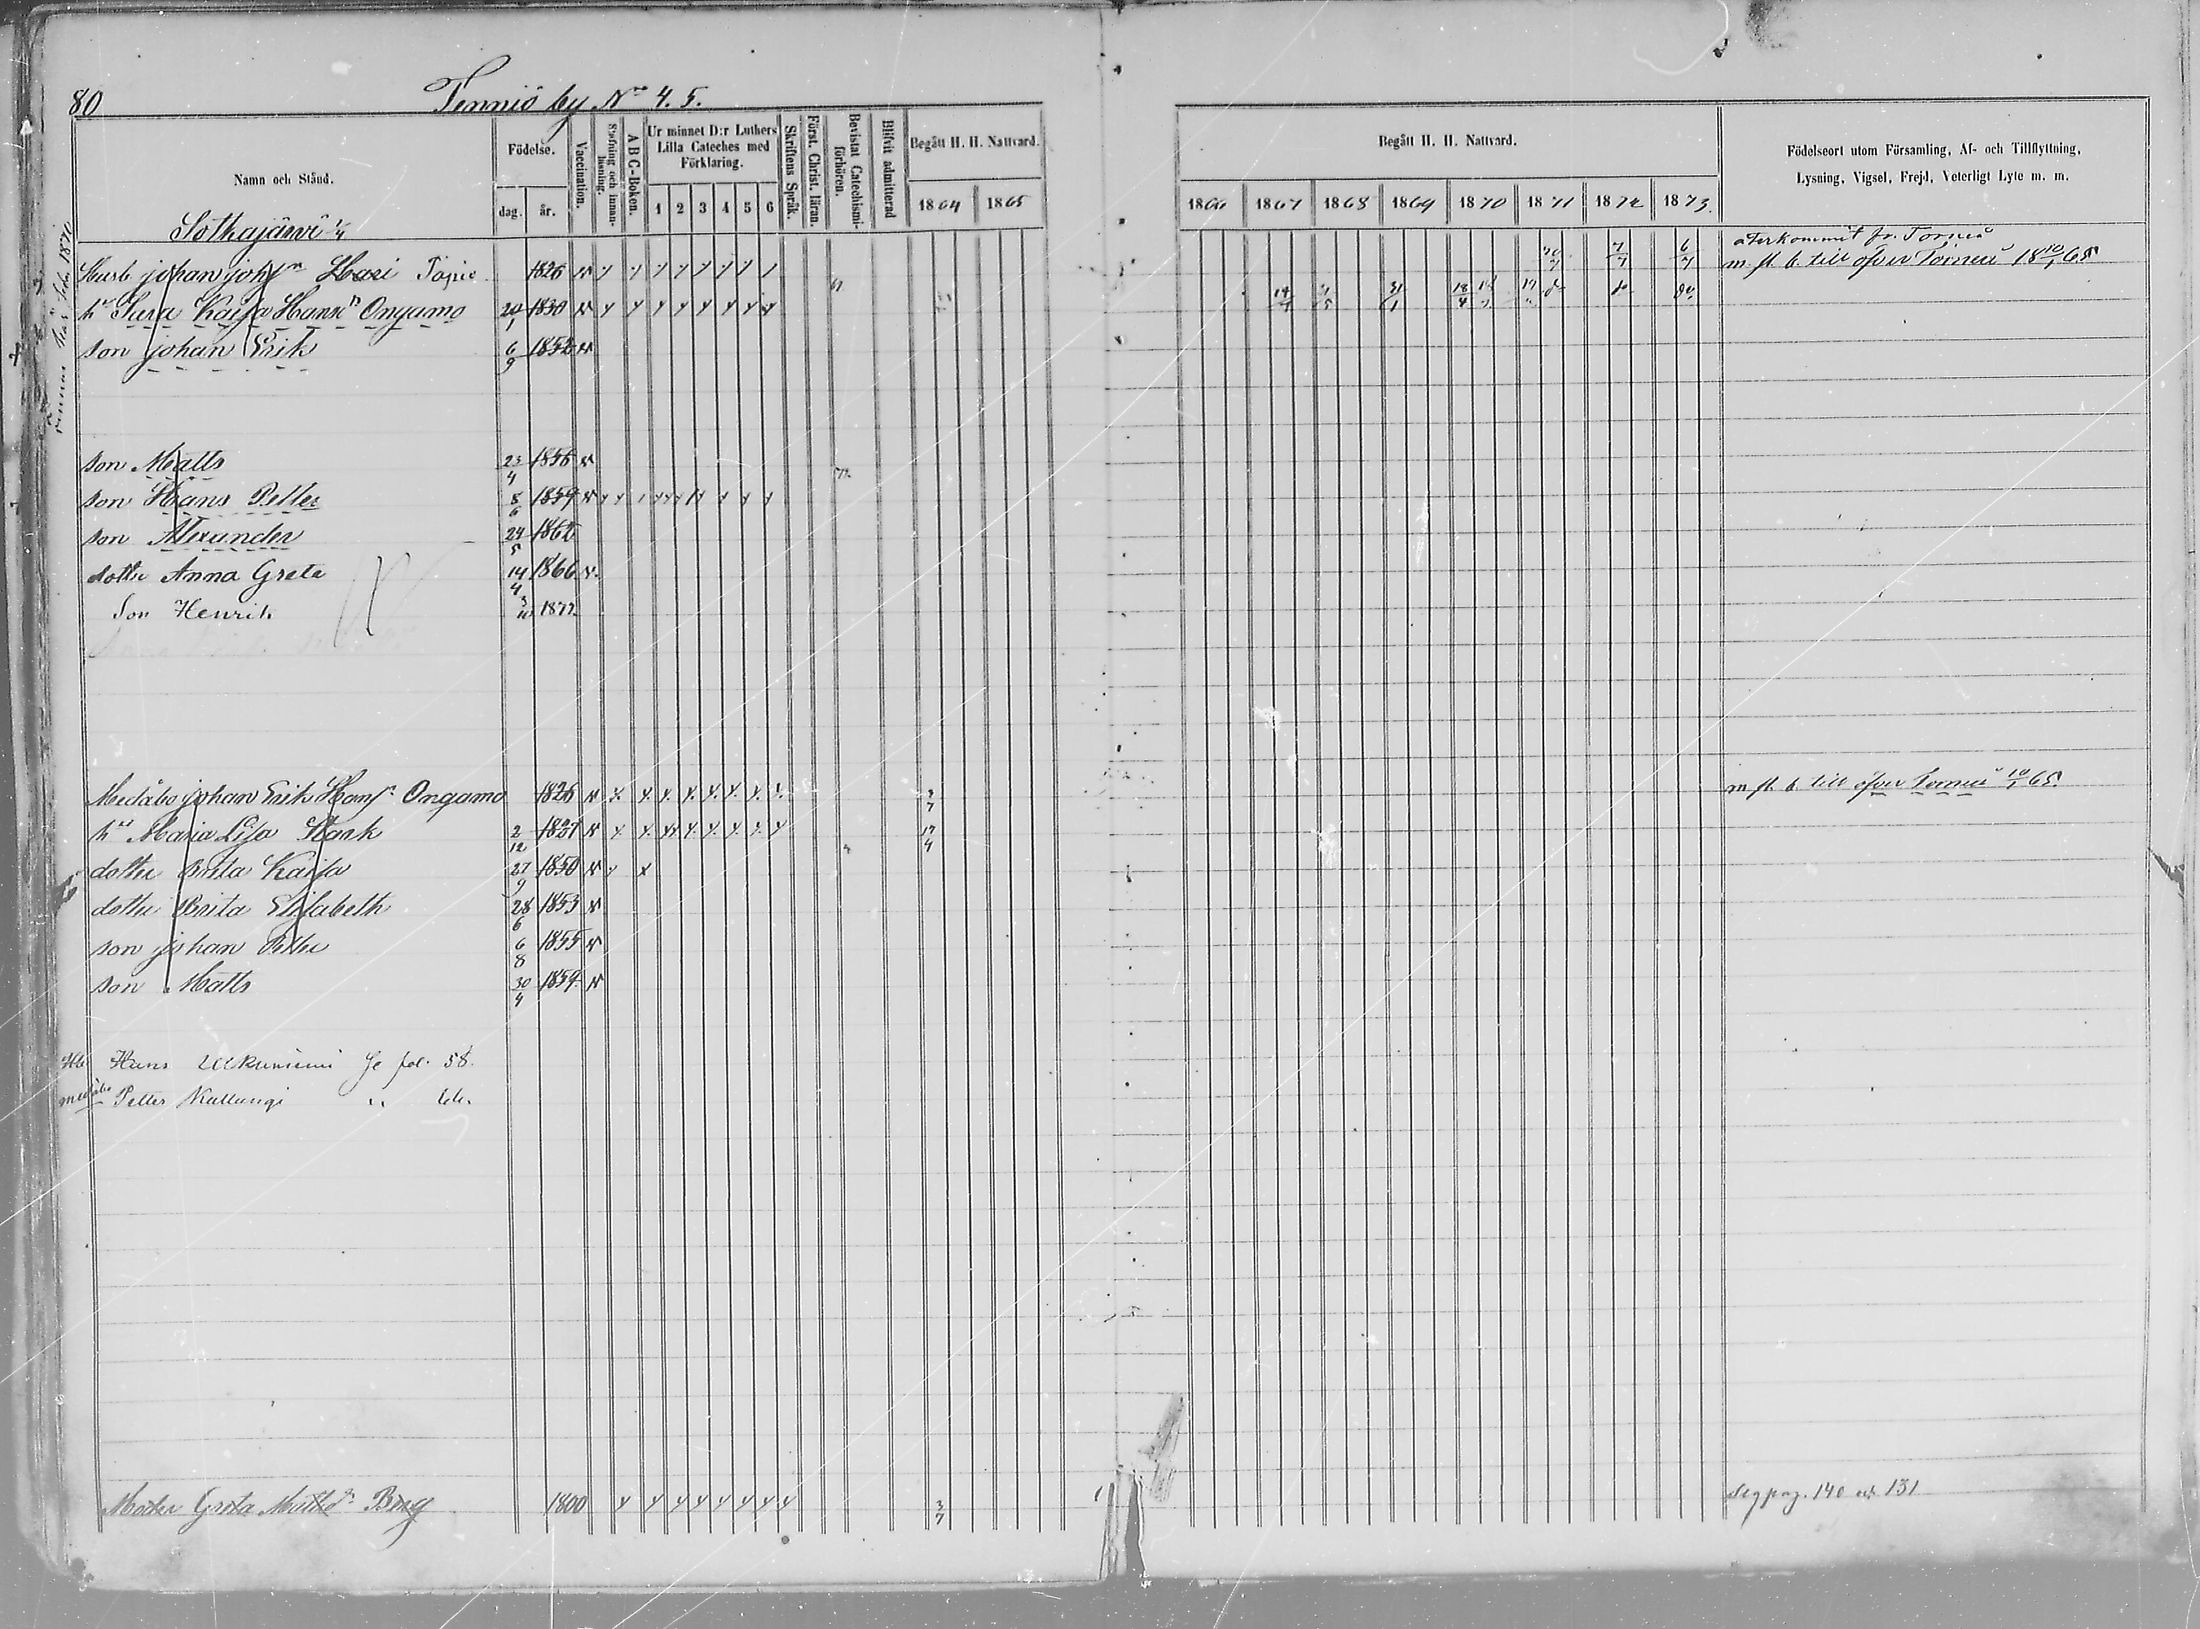 80
Tenniö by No 4. 5.
Namn och Stånd.
Födelse.
dag.
år.
Vaccination.
Stafning och innan-läsning.
ABC-Boken.
Ur minnet D:r Luthers Lilla Cateches med Förklaring.
1 2 3 4 5 6
Skriftens Språk.
Först. Christ. läran.
Bevistat Catechismi-förhören.
Blifvit admitterad
Begått H. H. Nattvard.
1864 1865
Begått H. H. Nattvard.
1866 1867 1868 1869 1870 1871 1872 1873.
Födelseort utom Församling, Af- och Tillflyttning,
Lysning, Vigsel, Frejd, Veterligt Lyte m. m.
Sotkajärvi 1/4
återkommit fr. Torneå
Husb johan johsn Hari Tapio 1826 20/7 7/7 6/7 m. fl. b. till öfver Torneå 18 10/1 65
hu Sara Kaisa Hansdr Ongamo 20/1 1830
son johan Erik 6/9 1852
son Matts 23/4 1856
son Hans Petter 8/6 1859
son Alexander 24/5 1862
dotter Anna Greta 14/4 1866
Son Henrik 3/10 1872
Medåbo johan Erik Hansn Ongamo 1826 3/7 m. fl. b. till öfver Torneå 10/1 65.
hu Maria Lisa Stark 2/12 1827 17/4
dotter Brita Kaisa 27/9 1850
dotter Brita Elisabeth 28/6 1853
son johan Petter 6/8 1855
son Matts 30/4 1859
Hb Hans Ulkuniemi Se pol. 58.
medåbo Petter Kallungi
Moder Greta Mattsdr Bing 1800 3/7 Seg pag. 140 och 131